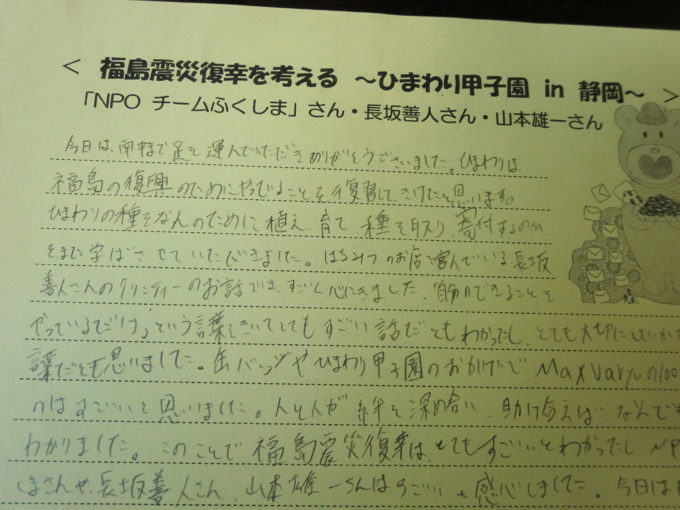 ＜ 福島震災復幸を考える ～ひまわり甲子園 in 静岡～ ＞
「NPO チームふくしま」さん・長坂善人さん・山本雄一さん
今日は、南まで足を運んでいただきありがとうございました。ひまわりは
福島の復興のためにやっていることを復習していけたと思います。
ひまわりの種をなんのために植え 育て 種を取り 寄付するのか
をまた学ばさせていただきました。はちみつのお店を営んでいる長坂
善人さんの のお話では、すごく心にきました。自分のできることを
やっているだけ。という言葉をきいてとてもすごい話だともわかったし、とても大切にしていかな
言葉だとも思いました。缶バッジやひまわり甲子園のおかげで Max Value の100
のはすごいと思いました。人と人が絆を深め合い 助け合えば なんでも
わかりました。このことで福島震災復幸は、とてもすごいとわかったし、NP
しまさんや、長坂善人さん、山本雄一さんはすごいと感心しました。今日は